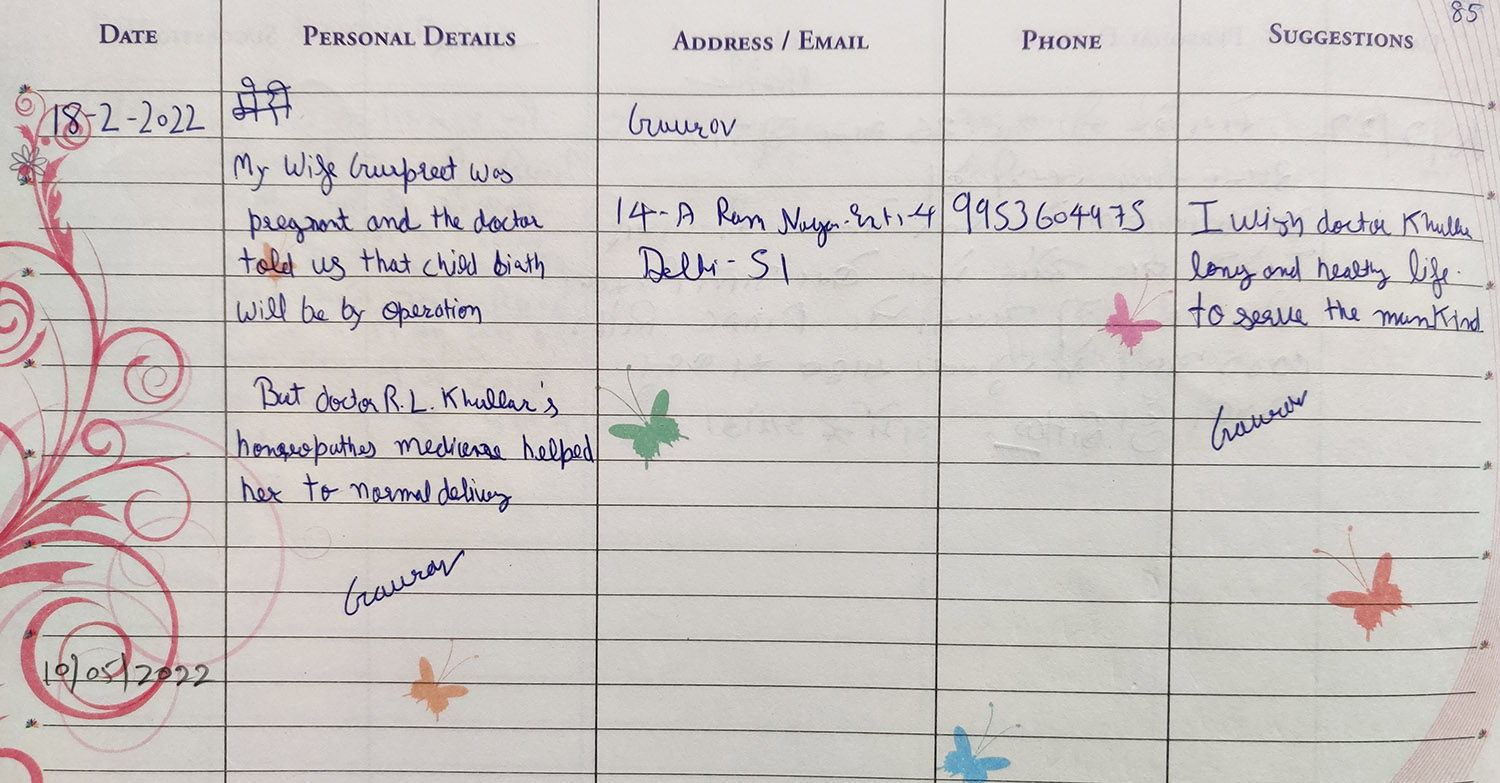 85
DATE PERSONAL DETAILS ADDRESS / EMAIL PHONE SUGGESTIONS
18-2-2022
Gaurav
My Wife Gurpreet was
pregnant and the doctor
told us that child birth
will be by operation
But doctor R.L. Khullar's
medicense helped
her to normal delivery
Gaurav
14-A Ram Nagar Extn-4
Delhi-51
9953604975
I wish doctor Khullar
long and healthy life.
to serve the mankind
Gaurav
10/05/2022